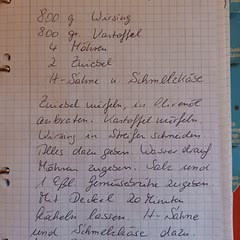 800 g Wirsing
800 gr. Kartoffel
4 Möhren
2 Zwiebel
H-Sahne u Schmelzkäse
Zwiebel würfeln, in Olivenöl
anbraten. Kartoffel würfeln.
Wirsing in Streifen schneiden
Alles dazu geben. Wasser drauf
Möhren zugeben. Salz und
1 Eßl. Gemüsebrühe zugeben
Mit Deckel 20 Minuten
köcheln lassen. H-Sahne
und Schmelzkäse dazu.